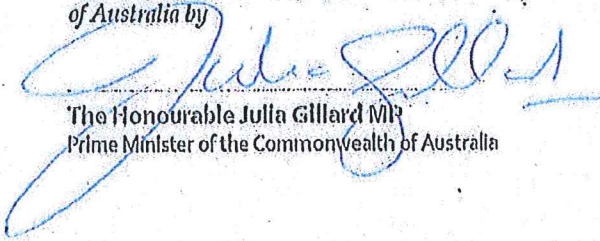 of Australia by
Julia Gillard
The Honourable Julia Gillard MP
Prime Minister of the Commonwealth of Australia